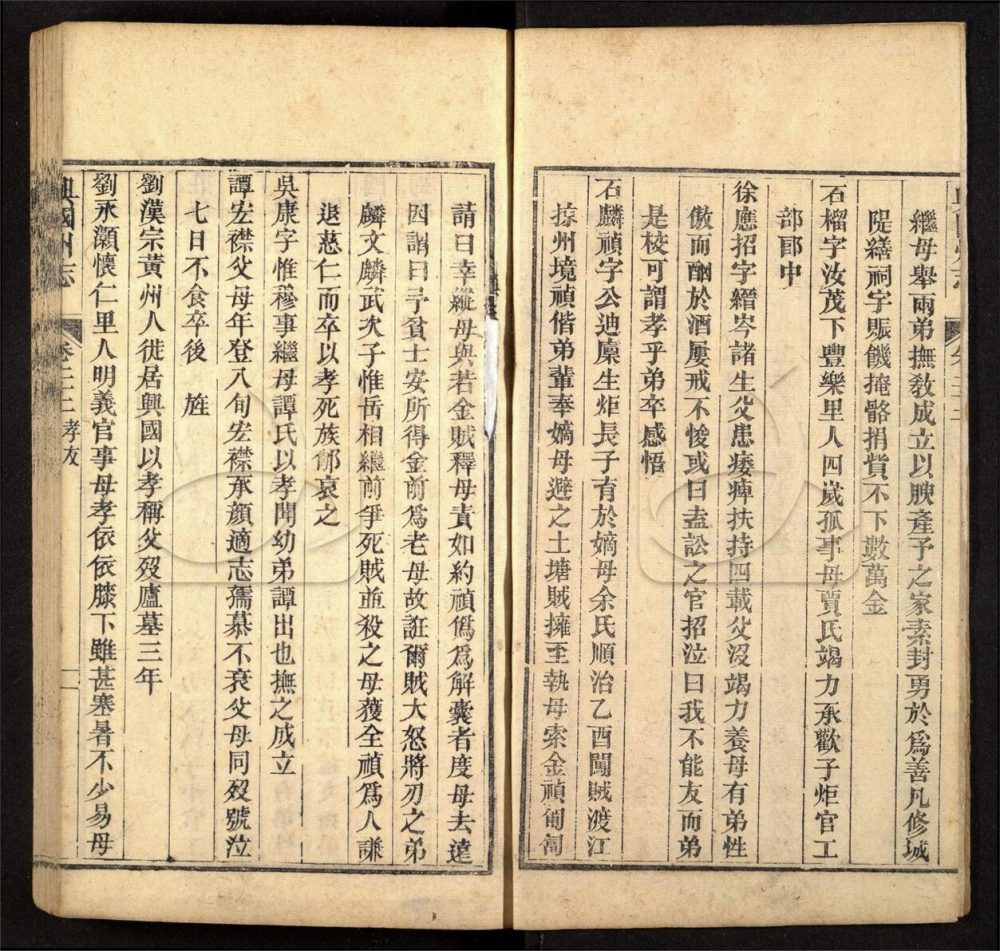 繼母舉兩弟撫敎成立以腴產予之家素封勇於爲善凡修城
隄繕祠字賑饑掩骼捐貲不下數萬金
石榴字汝茂下豐樂里人四歲孤事母賈氏竭力承歡子炬官工
部郎中
徐應招字縉岑諸生父患痿痺扶持四載父沒竭力養母有弟性
傲而酗於酒屢戒不悛或曰盍訟之官招泣曰我不能友而弟
是校可謂孝乎弟卒感悟
石麟禎字公迪廩生炬長子有於嫡母余氏順治乙酉闖賊渡江
掠州境禎偕弟輩奉嫡母避之土塘賊擁至執母索金禎匍匐
請曰幸縱母與若金賊釋母責如約禎僞爲解囊者度母去遠
因謂曰予貧士安所得金前爲老母故誑爾賊大怒將刃之弟
麟文麟武次子惟岳相繼前爭死賊並殺之母獲全禎爲人謙
退慈仁而卒以孝死族郰哀之
吳康字惟穆事繼母譚氏以孝聞幼弟譚出也撫之成立
譚宏襟父母年登八旬宏襟承顏適志孺慕不衰父母同歿號泣
七日不食卒後 旌
劉漢宗黃州人徙居興國以孝稱父歿廬墓三年
劉承灝懷仁里人明義官事母孝依依膝下雖甚寒暑不少易母
興國州志
卷二十三 孝友